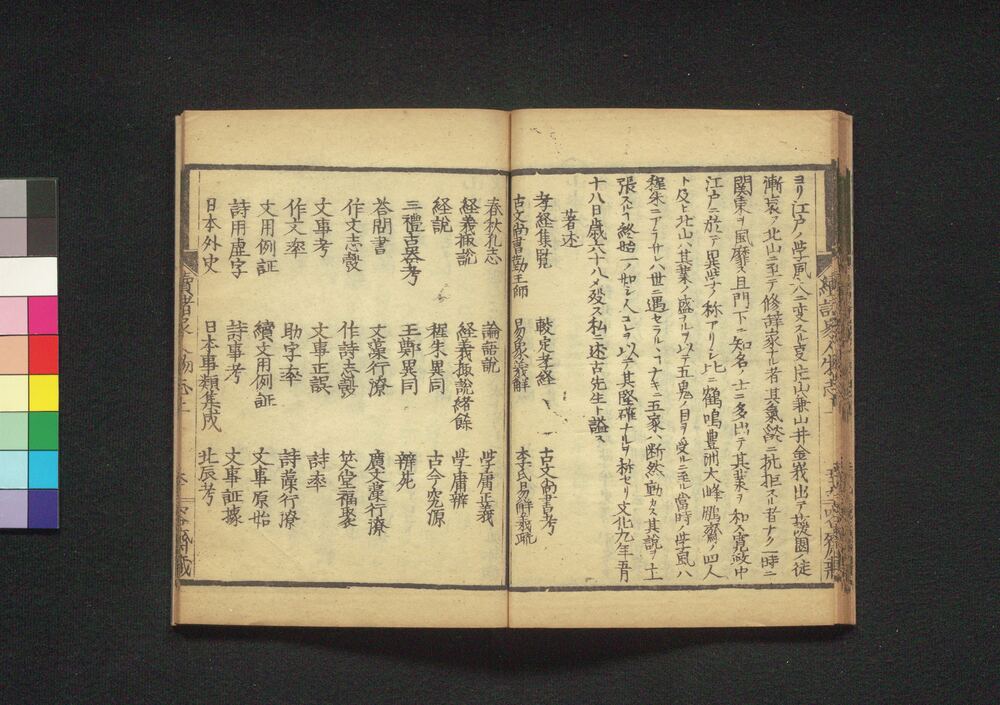 ヨリ江戸ノ学風一変スル�夏片山兼山井金峩出テ蘐園ノ徒
漸衰ヘ北山ニ至テ修辞家ナル者其氣燄ニ抗拒スル者ナク一時ニ
関東ヲ風靡ス且門下ニ知名ノ士ニ多出テ其業ヲ和ス寛政中
江戸ニ於テ異学ノ称アリシ比ニ鶴鳴豊洲大峰鵬齋ノ四人
ト及ヒ北山ハ其業ノ盛ナルヲ以テ五鬼ノ目ヲ受ルニ至ル當時ノ学風ハ
程朱ニアラサレハ世ニ遇セラルヽコナキニ五家ハ断然動カス其説ヲ主
張スルコ終始一ノ如シ人コレヲ以テ其堅確ナルヲ称セリ文化九年五月
十八日歳六十八ニメ殁ス私ニ述古先生ト謚ス
著述
孝経集覧 較定孝経 古文尚書考
古文尚書勤王師 易象義解 李氏易解義疏
春秋孔志 論語説 学庸正義
経義掫説 経義掫説緒餘 学庸辨
経説 程朱異同 古今究源
三禮古器考 王鄭異同 辨死
荅問書 文藻行潦 廣文藻行潦
作文志彀 作詩志彀 笑堂福聚
文事考 文事正誤 詩率
作文率 助字率 詩藻行潦
文用例証 續文用例証 文事原始
詩用虚字 詩事考 文事証據
日本外史 日本事類集成 北辰考